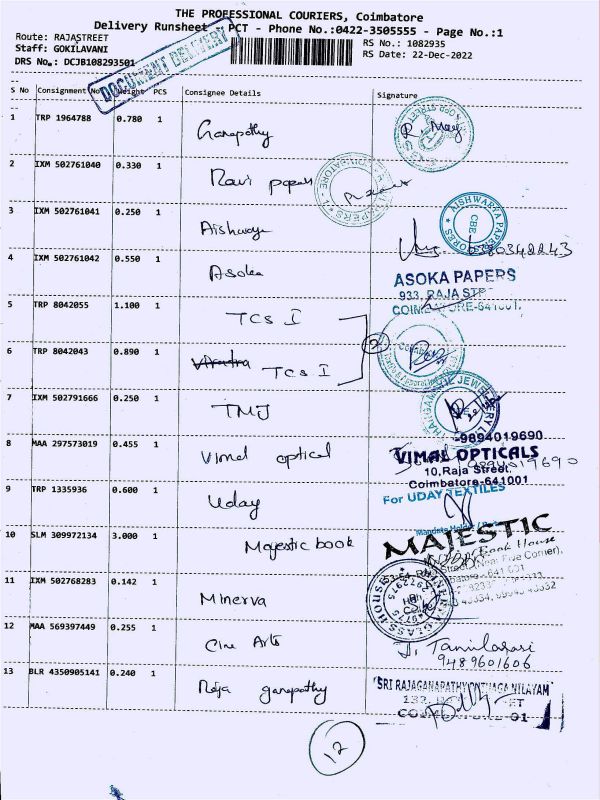 THE PROFESSIONAL COURIERS, Coimbatore
Delivery Runsheet - PCT - Phone No.:0422-3505555 - Page No.:1
Route: RAJASTREET
RS No.: 1082935
Staff: GOKILAVANI
RS Date: 22-Dec-2022
DRS No.: DCJB108293501
DOCUMENT DELIVERY
S No Consignment No Weight PCS Consignee Details Signature
1 TRP 1964788 0.780 1 Ganapathy
2 IXM 502761040 0.330 1 Ravi papers
3 IXM 502761041 0.250 1 Aishwarya
AISHWARYA PAPER STORES CBE
4 IXM 502761042 0.550 1 Asoka
ASOKA PAPERS
933, RAJA STREET
COIMBATORE-641001.
5 TRP 8042055 1.100 1 TCS I
6 TRP 8042043 0.890 1 TCS I
2
7 IXM 502791666 0.250 1 TMJ
8 MAA 297573019 0.455 1 Vimal optical
-9894019690
VIMAL OPTICALS
9894019690
10,Raja Street,
Coimbatore-641001
9 TRP 1335936 0.600 1 Uday
For UDAY TEXTILES
10 SLM 309972134 3.000 1 Majestic book
MAJESTIC
Book House
(Near Five Corner),
11 IXM 502768283 0.142 1 Minerva
MINERVA GLASS HOUSE
12 MAA 569397449 0.255 1 Cine Arts
J. Tamilarasi
9489601606
13 BLR 4350905141 0.240 1 Raja ganapathy
SRI RAJAGANAPATHY
12